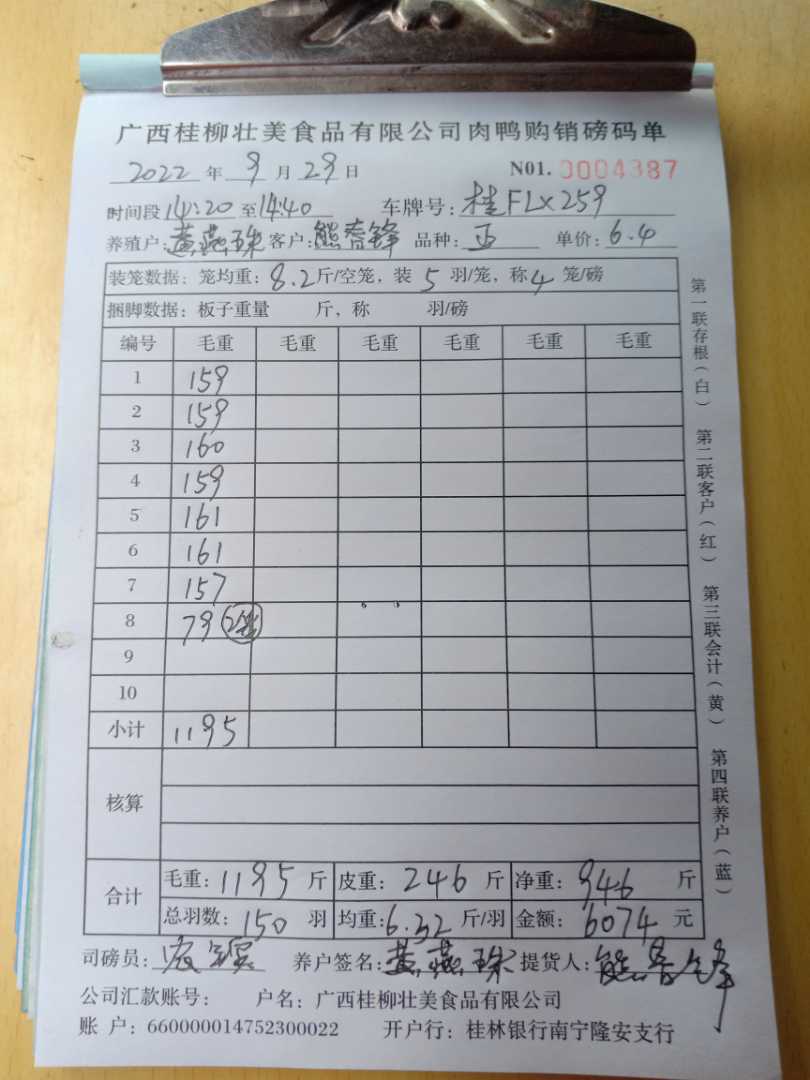 广西桂柳壮美食品有限公司肉鸭购销磅码单
2022 年 9 月 29 日 N01. 0004387
时间段 14:20 至 14:40 车牌号: 桂FLX259
养殖户: 黄燕珠 客户: 熊春锋 品种: 正 单价: 6.4
装笼数据: 笼均重: 8.2 斤/空笼, 装 5 羽/笼, 称 4 笼/磅
捆脚数据: 板子重量 斤, 称 羽/磅
编号 毛重 毛重 毛重 毛重 毛重 毛重
1 159
2 159
3 160
4 159
5 161
6 161
7 157
8 79 2笼
9
10
小计 1195
核算
合计 毛重: 1195 斤 皮重: 246 斤 净重: 946 斤
总羽数: 150 羽 均重: 6.32 斤/羽 金额: 6074 元
司磅员: 养户签名: 黄燕珠 提货人: 熊春锋
公司汇款账号: 户名: 广西桂柳壮美食品有限公司
账 户: 660000014752300022 开户行: 桂林银行南宁隆安支行
第一联存根(白) 第二联客户(红) 第三联会计(黄) 第四联养户(蓝)